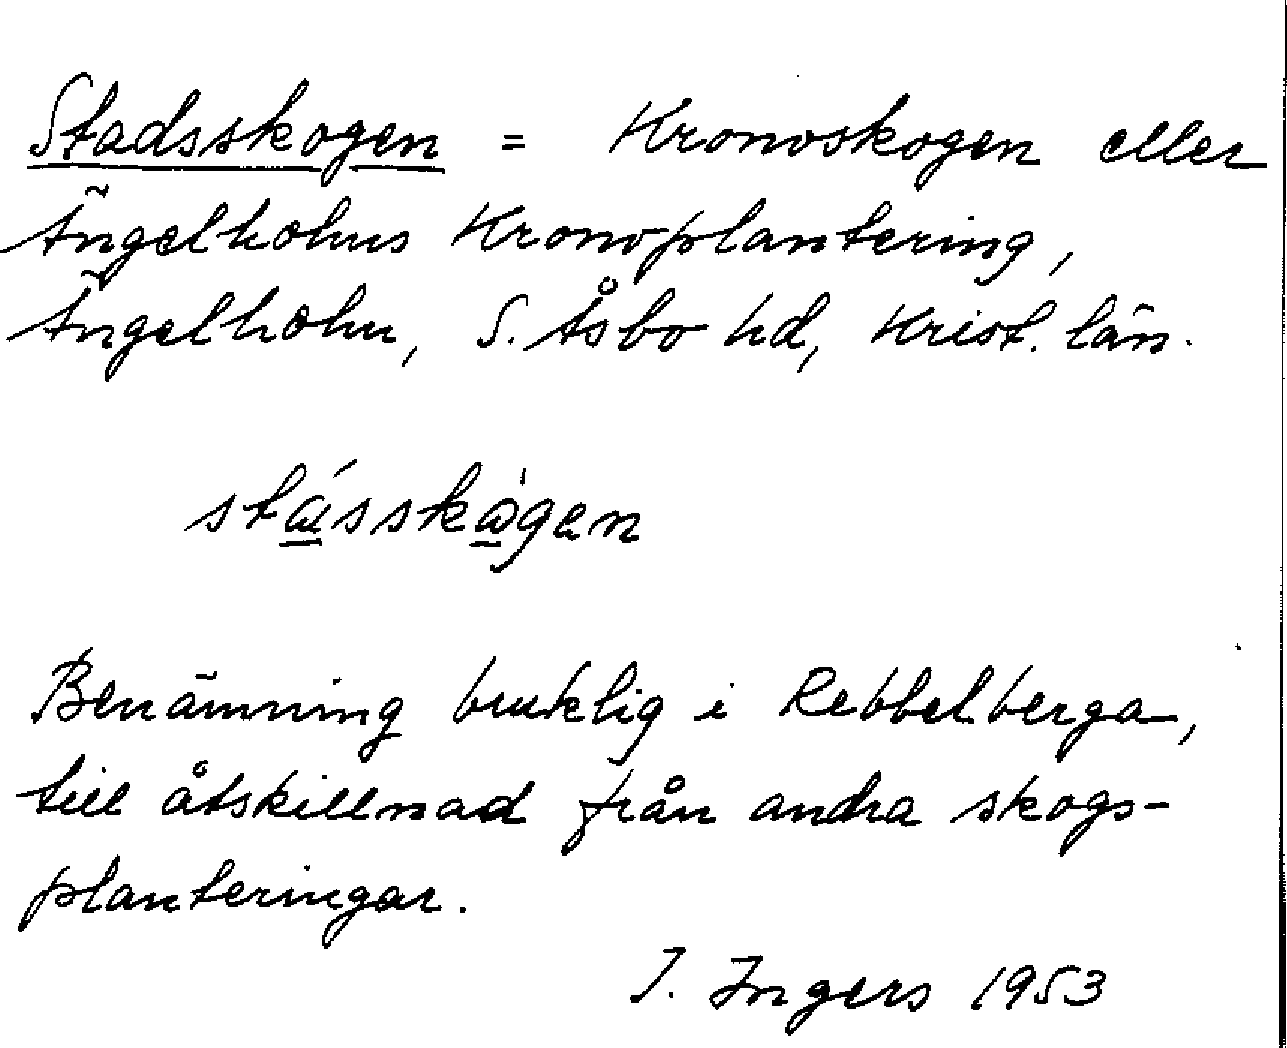 Stadsskogen = Kronoskogen eller
Ängelholms Kronoplantering,
Ängelholm, S. Åsbo hd, Krist. län.
stássko̊gen
Benämning bruklig i Rebbelberga,
till åtskillnad från andra skogs-
planteringar.
I. Ingers 1953